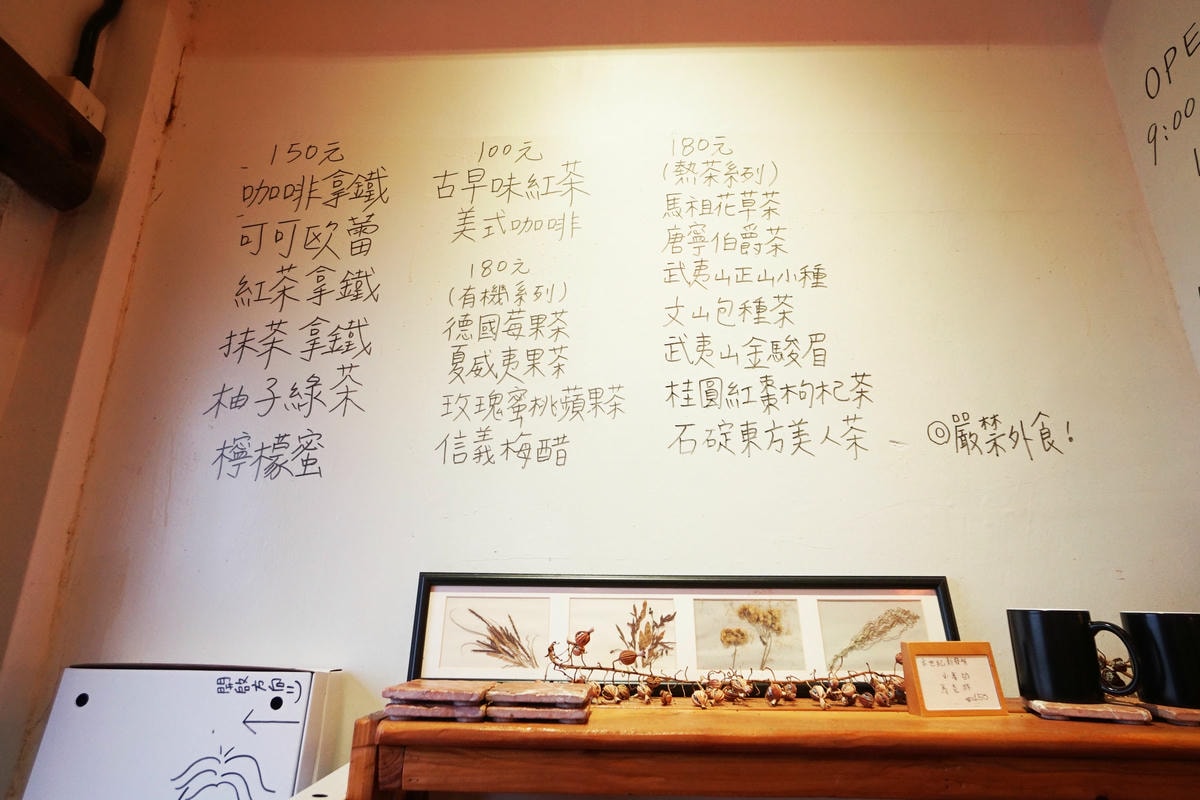 150元
咖啡拿鐵
可可歐蕾
紅茶拿鐵
抹茶拿鐵
柚子綠茶
檸檬蜜
100元
古早味紅茶
美式咖啡
180元
(有機系列)
德國莓果茶
夏威夷果茶
玫瑰蜜桃蘋果茶
信義梅醋
180元
(熱茶系列)
馬祖花草茶
唐寧伯爵茶
武夷山正山小種
文山包種茶
武夷山金駿眉
桂圓紅棗枸杞茶
石碇東方美人茶
◎嚴禁外食!
OPE
9:00
開啟方向